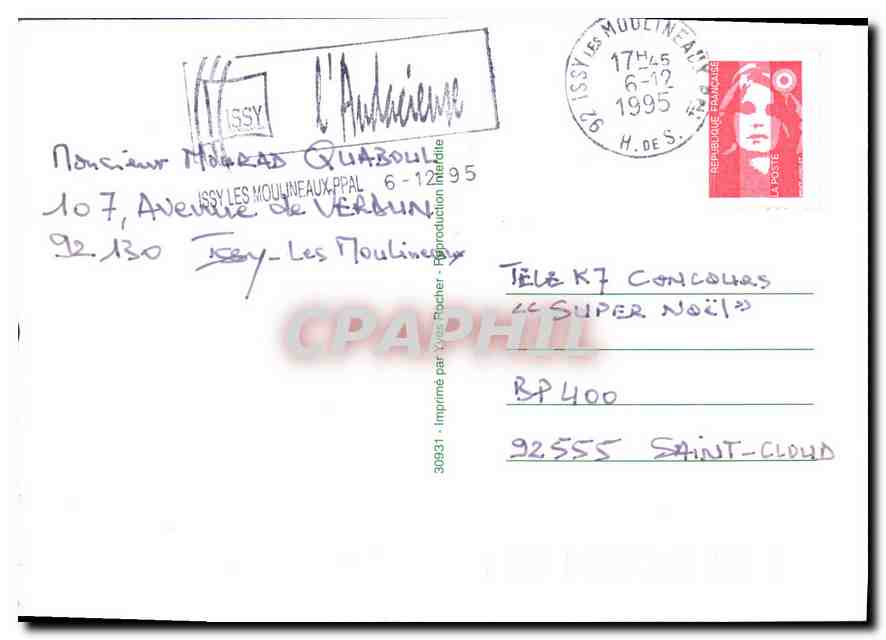 ISSY
l'Audacieuse
ISSY LES MOULINEAUX-PPAL 6-12 95
92 ISSY LES MOULINEAUX PPAL
17H45
6-12
1995
H. DE S.
REPUBLIQUE FRANÇAISE
LA POSTE
Monsieur MOURAD QUABOUL
107, Avenue de VERDUN
92.130 Issy-Les Moulineaux
30931 - Imprimé par Yves Rocher - Reproduction Interdite
CPAPHIL
TÉLÉ K7 CONCOURS
<< SUPER NOËL>>
BP 400
92555 SAINT-CLOUD